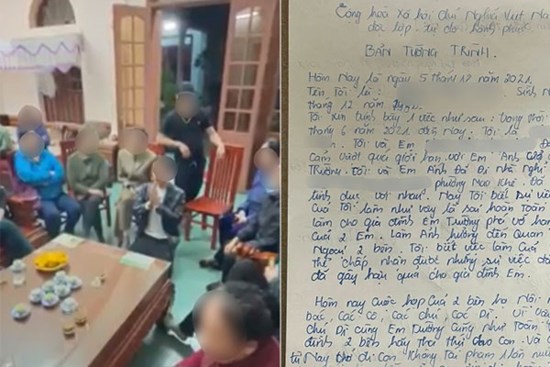 Cộng hoà Xã hội Chủ Nghĩa Việt Na
độc lập - tự do - hạnh phúc
BẢN TƯỜNG TRÌNH.
Hôm Nay là ngày 5 tháng 12 năm 2021.
Tên Tôi là : Sinh N
tháng 12 năm
Tôi xin trình bày 1 việc như sau : Vong thời
tháng 6 năm 2021 đến nay. Tôi là
Tôi với Em
Cảm vượt quá giới hạn với Em Anh Cưới
Trường: Tôi và Em Anh Đã Đi Nhà Nghỉ
phường Mao Khê. Đã
tình dục với nhau. Nay Tôi biết sự việc
Của Tôi làm như vậy là sai hoàn Toàn
làm cho gia đình Em Trường phá vỡ hạn
Cuối 2 Em. Làm Ảnh hưởng đến Quan
Ngoại 2 bên. Tôi biết việc làm Của
Thể chấp nhận được nhưng sự việc đã
đã gây hậu quả cho gia đình Em.
Hôm nay Cuộc họp Của 2 bên họ Nội
bác, Các cô, các chú, Các Dì. Vì Vậ
Chú Dì cùng Em Dường Cũng như Toàn
đình 2 bên hãy tha thứ cho Con. Và
từ Nay trở đi Con Không Tái phạm